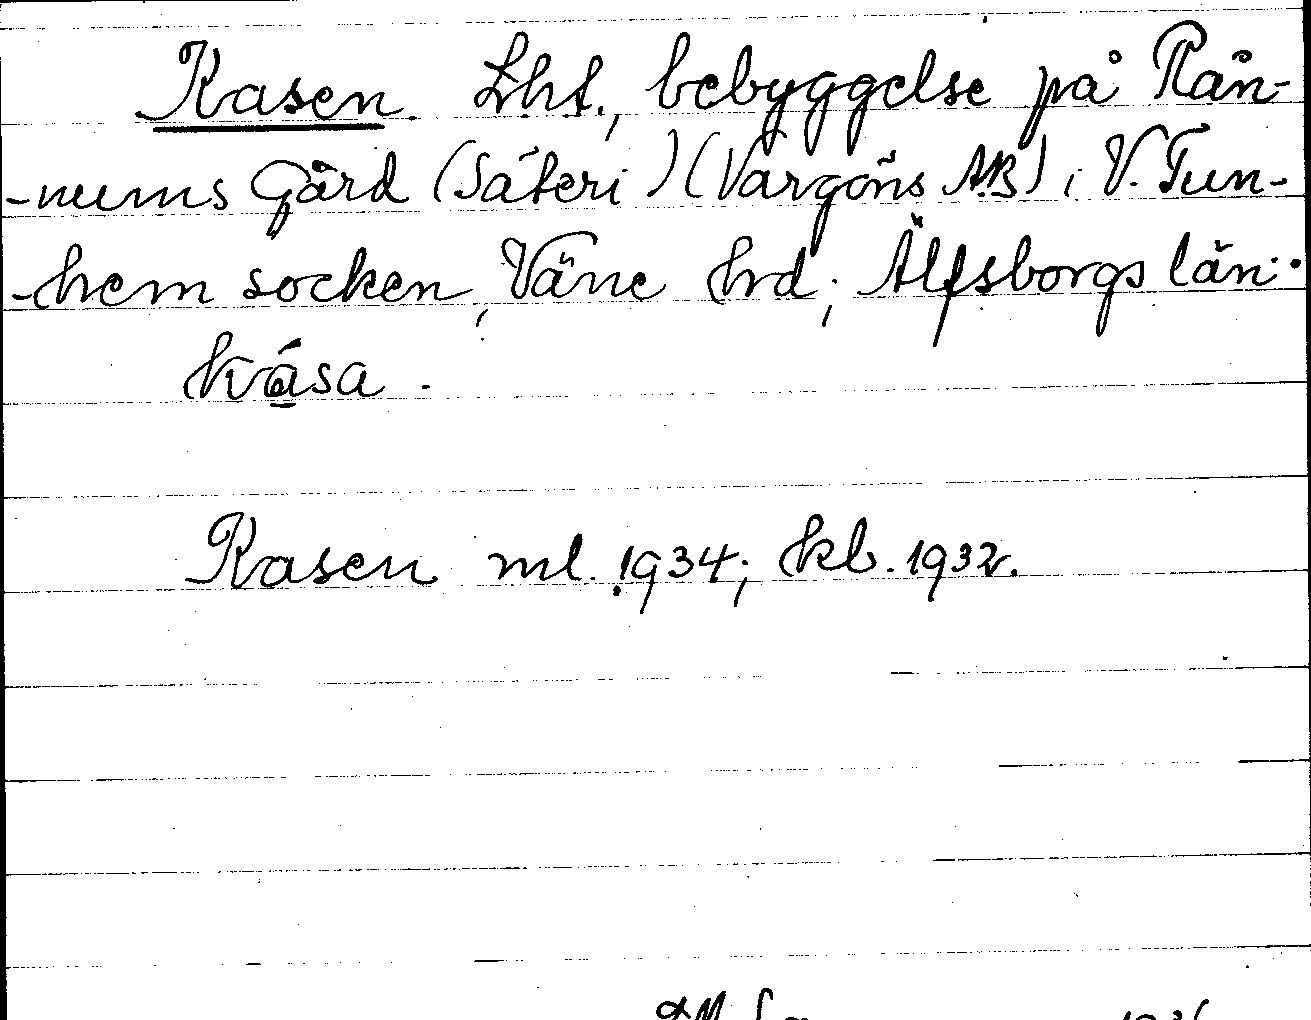 Kasen. Lht., bebyggelse på Rån-
-nums Gård (Säteri) (Vargöns AB), V. Tun-
-hem socken, Väne hd; Älfsborgs län.
kása.
Kasen ml. 1934; kb. 1932.